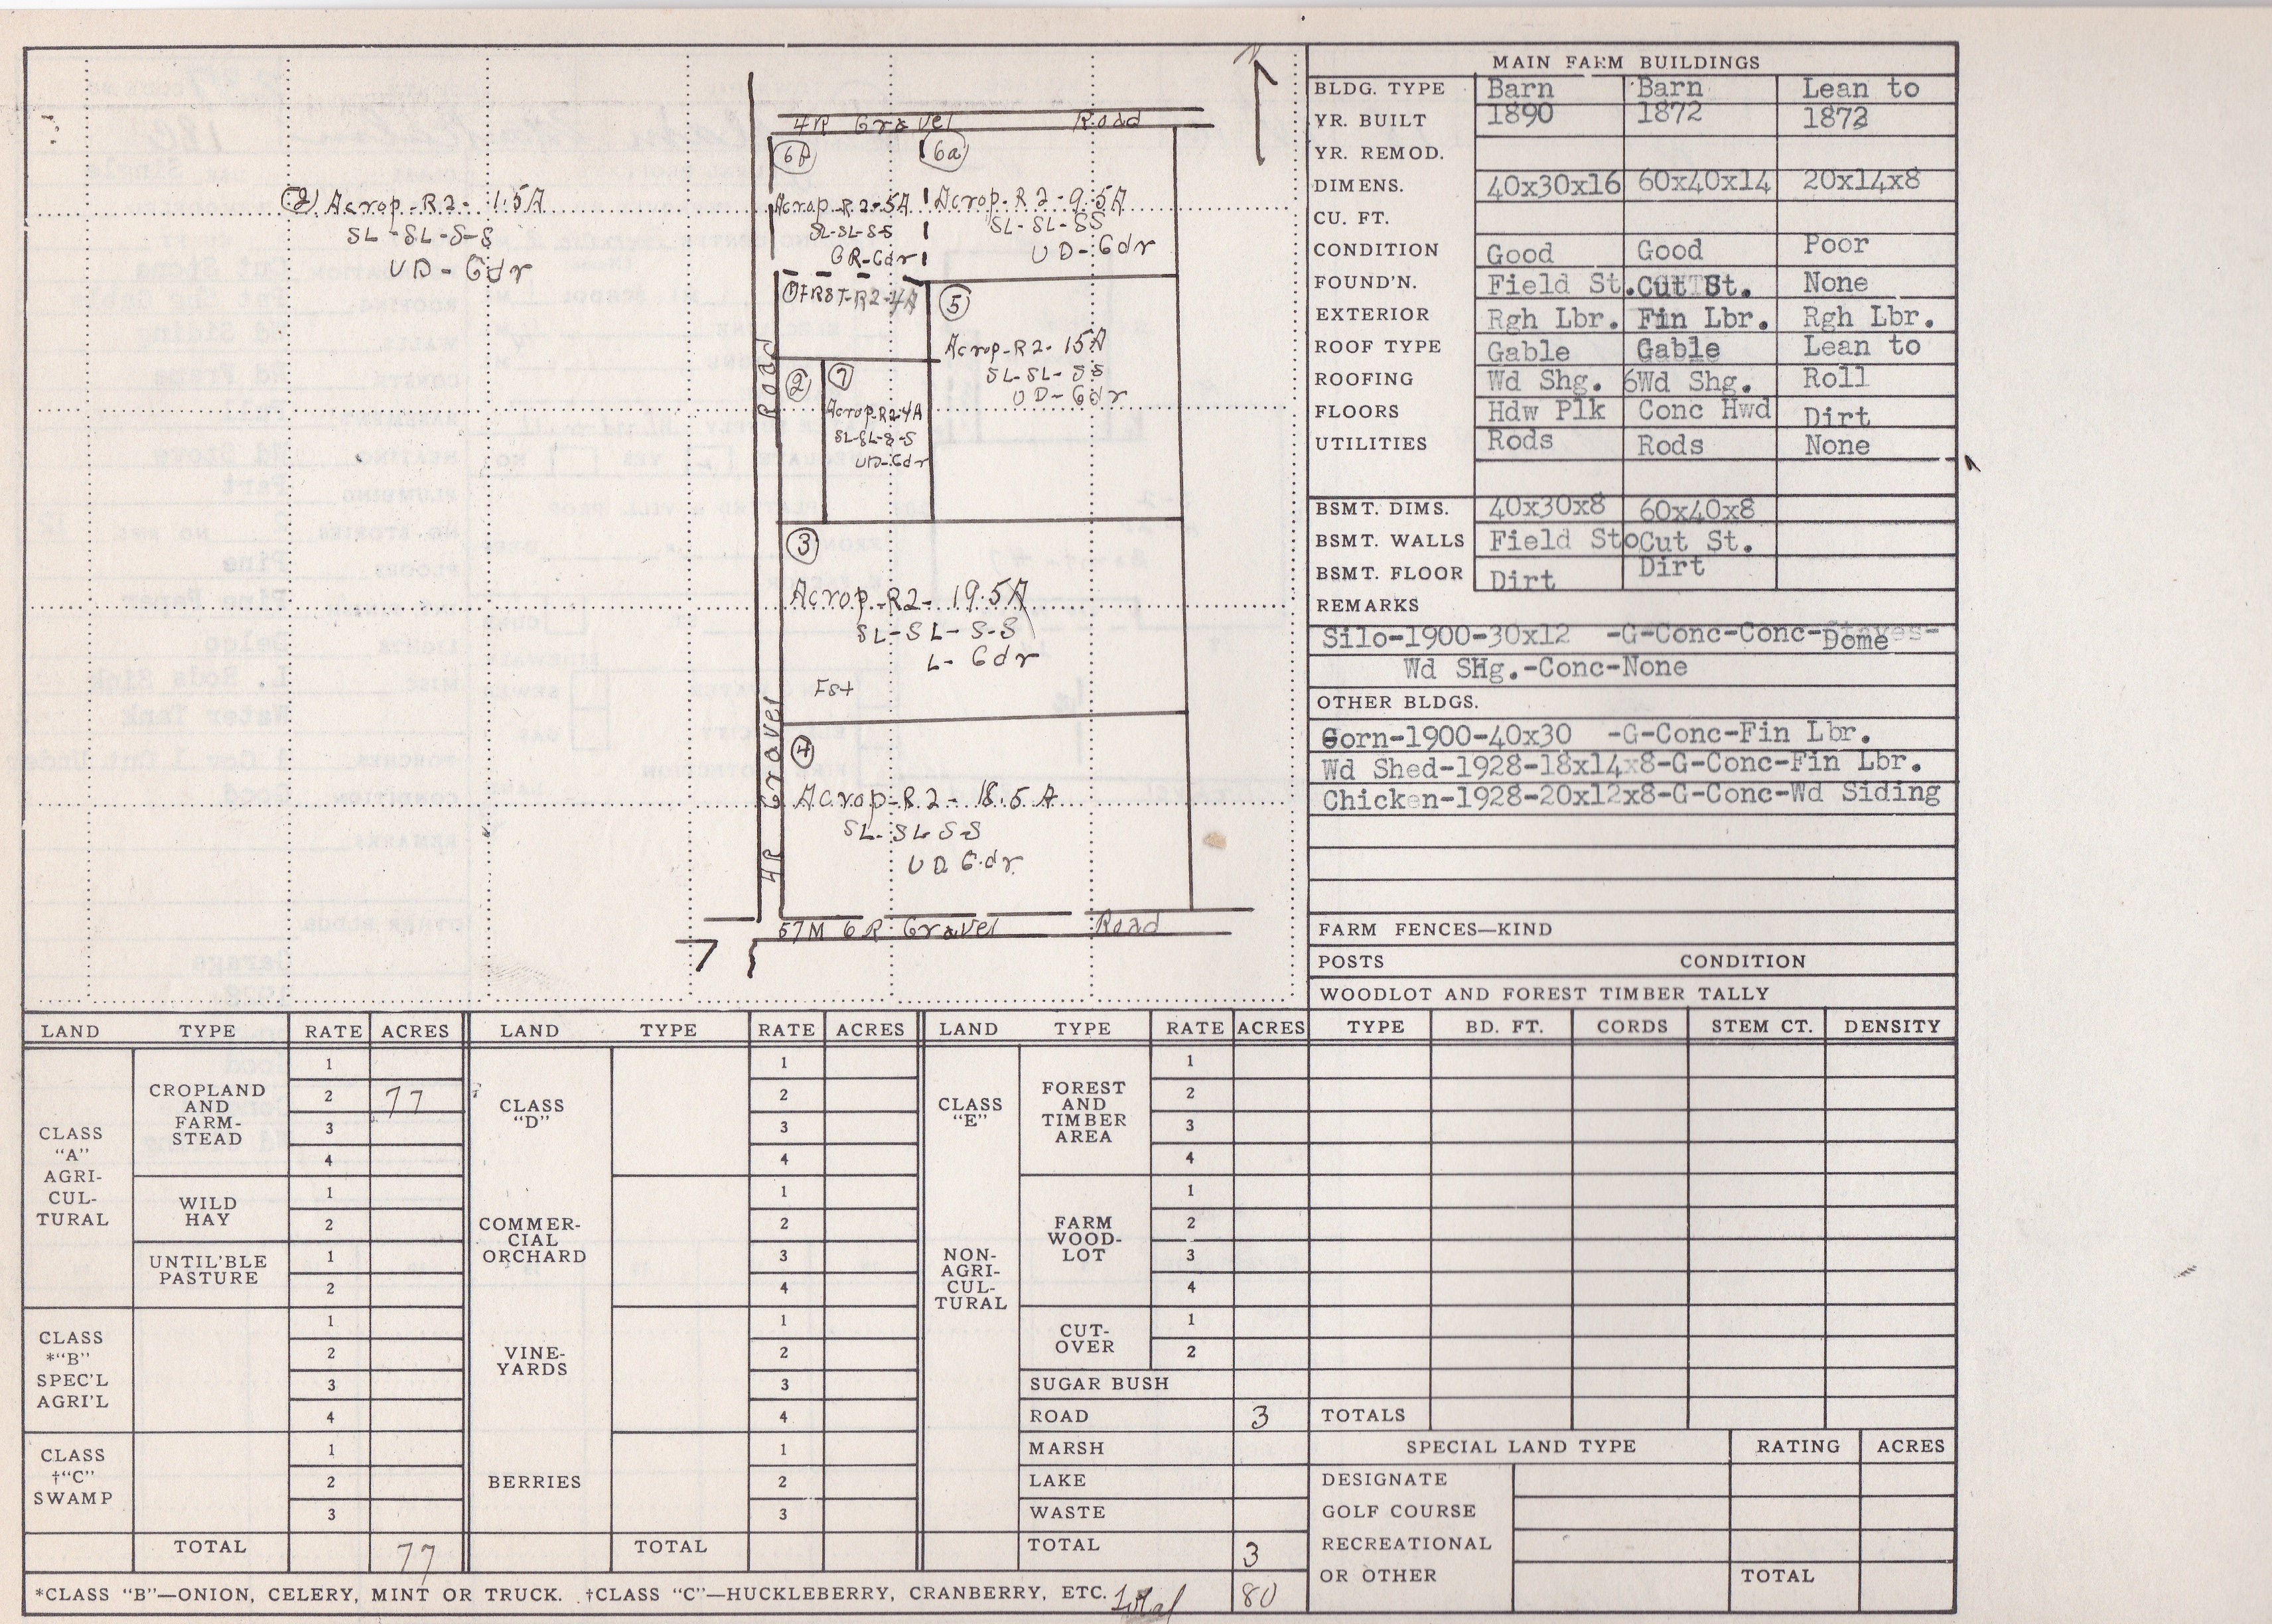 4R Gravel Road
6b
6a
2) Acrop-R2- 1.5A
SL-SL-S-S
UD-Gdr
Acrop-R2-5A
SL-SL-S-S
GR-Gdr
Acrop-R2-9.5A
SL-SL-SS
UD-Gdr
1
FRST-R2-4A
5
Acrop-R2-15A
SL-SL-SS
UD-Gdr
2
7
Acrop-R2-4A
SL-SL-S-S
UD-Gdr
3
Acrop-R2-19.5A
SL-SL-S-S
L-Gdr
Fst
4
Acrop-R2-18.5A
SL-SL S-S
UD Gdr
4R Gravel Road
57M 6R Gravel Road
7
N
MAIN FARM BUILDINGS
BLDG. TYPE Barn Barn Lean to
YR. BUILT 1890 1872 1872
YR. REMOD.
DIMENS. 40x30x16 60x40x14 20x14x8
CU. FT.
CONDITION Good Good Poor
FOUND'N. Field St. Cut St. None
EXTERIOR Rgh Lbr. Fin Lbr. Rgh Lbr.
ROOF TYPE Gable Gable Lean to
ROOFING Wd Shg. 6Wd Shg. Roll
FLOORS Hdw Plk Conc Hwd Dirt
UTILITIES Rods Rods None
BSMT. DIMS. 40x30x8 60x40x8
BSMT. WALLS Field Sto Cut St.
BSMT. FLOOR Dirt Dirt
REMARKS
Silo-1900-30x12 -G-Conc-Conc-Staves-Dome
Wd SHg.-Conc-None
OTHER BLDGS.
Corn-1900-40x30 -G-Conc-Fin Lbr.
Wd Shed-1928-18x14x8-G-Conc-Fin Lbr.
Chicken-1928-20x12x8-G-Conc-Wd Siding
FARM FENCES—KIND
POSTS CONDITION
WOODLOT AND FOREST TIMBER TALLY
TYPE BD. FT. CORDS STEM CT. DENSITY
TOTALS
SPECIAL LAND TYPE RATING ACRES
DESIGNATE
GOLF COURSE
RECREATIONAL
OR OTHER TOTAL
LAND TYPE RATE ACRES
CLASS
"A"
AGRI-
CUL-
TURAL
CROPLAND
AND
FARM-
STEAD
1
2 77
3
4
WILD
HAY
1
2
UNTIL'BLE
PASTURE
1
2
CLASS
*"B"
SPEC'L
AGRI'L
1
2
3
4
CLASS
†"C"
SWAMP
1
2
3
TOTAL 77
LAND TYPE RATE ACRES
CLASS
"D"
1
2
3
4
COMMER-
CIAL
ORCHARD
1
2
3
4
VINE-
YARDS
1
2
3
4
BERRIES
1
2
3
TOTAL
LAND TYPE RATE ACRES
CLASS
"E"
NON-
AGRI-
CUL-
TURAL
FOREST
AND
TIMBER
AREA
1
2
3
4
FARM
WOOD-
LOT
1
2
3
4
CUT-
OVER
1
2
SUGAR BUSH
ROAD 3
MARSH
LAKE
WASTE
TOTAL 3
*CLASS "B"—ONION, CELERY, MINT OR TRUCK. †CLASS "C"—HUCKLEBERRY, CRANBERRY, ETC. Total 80